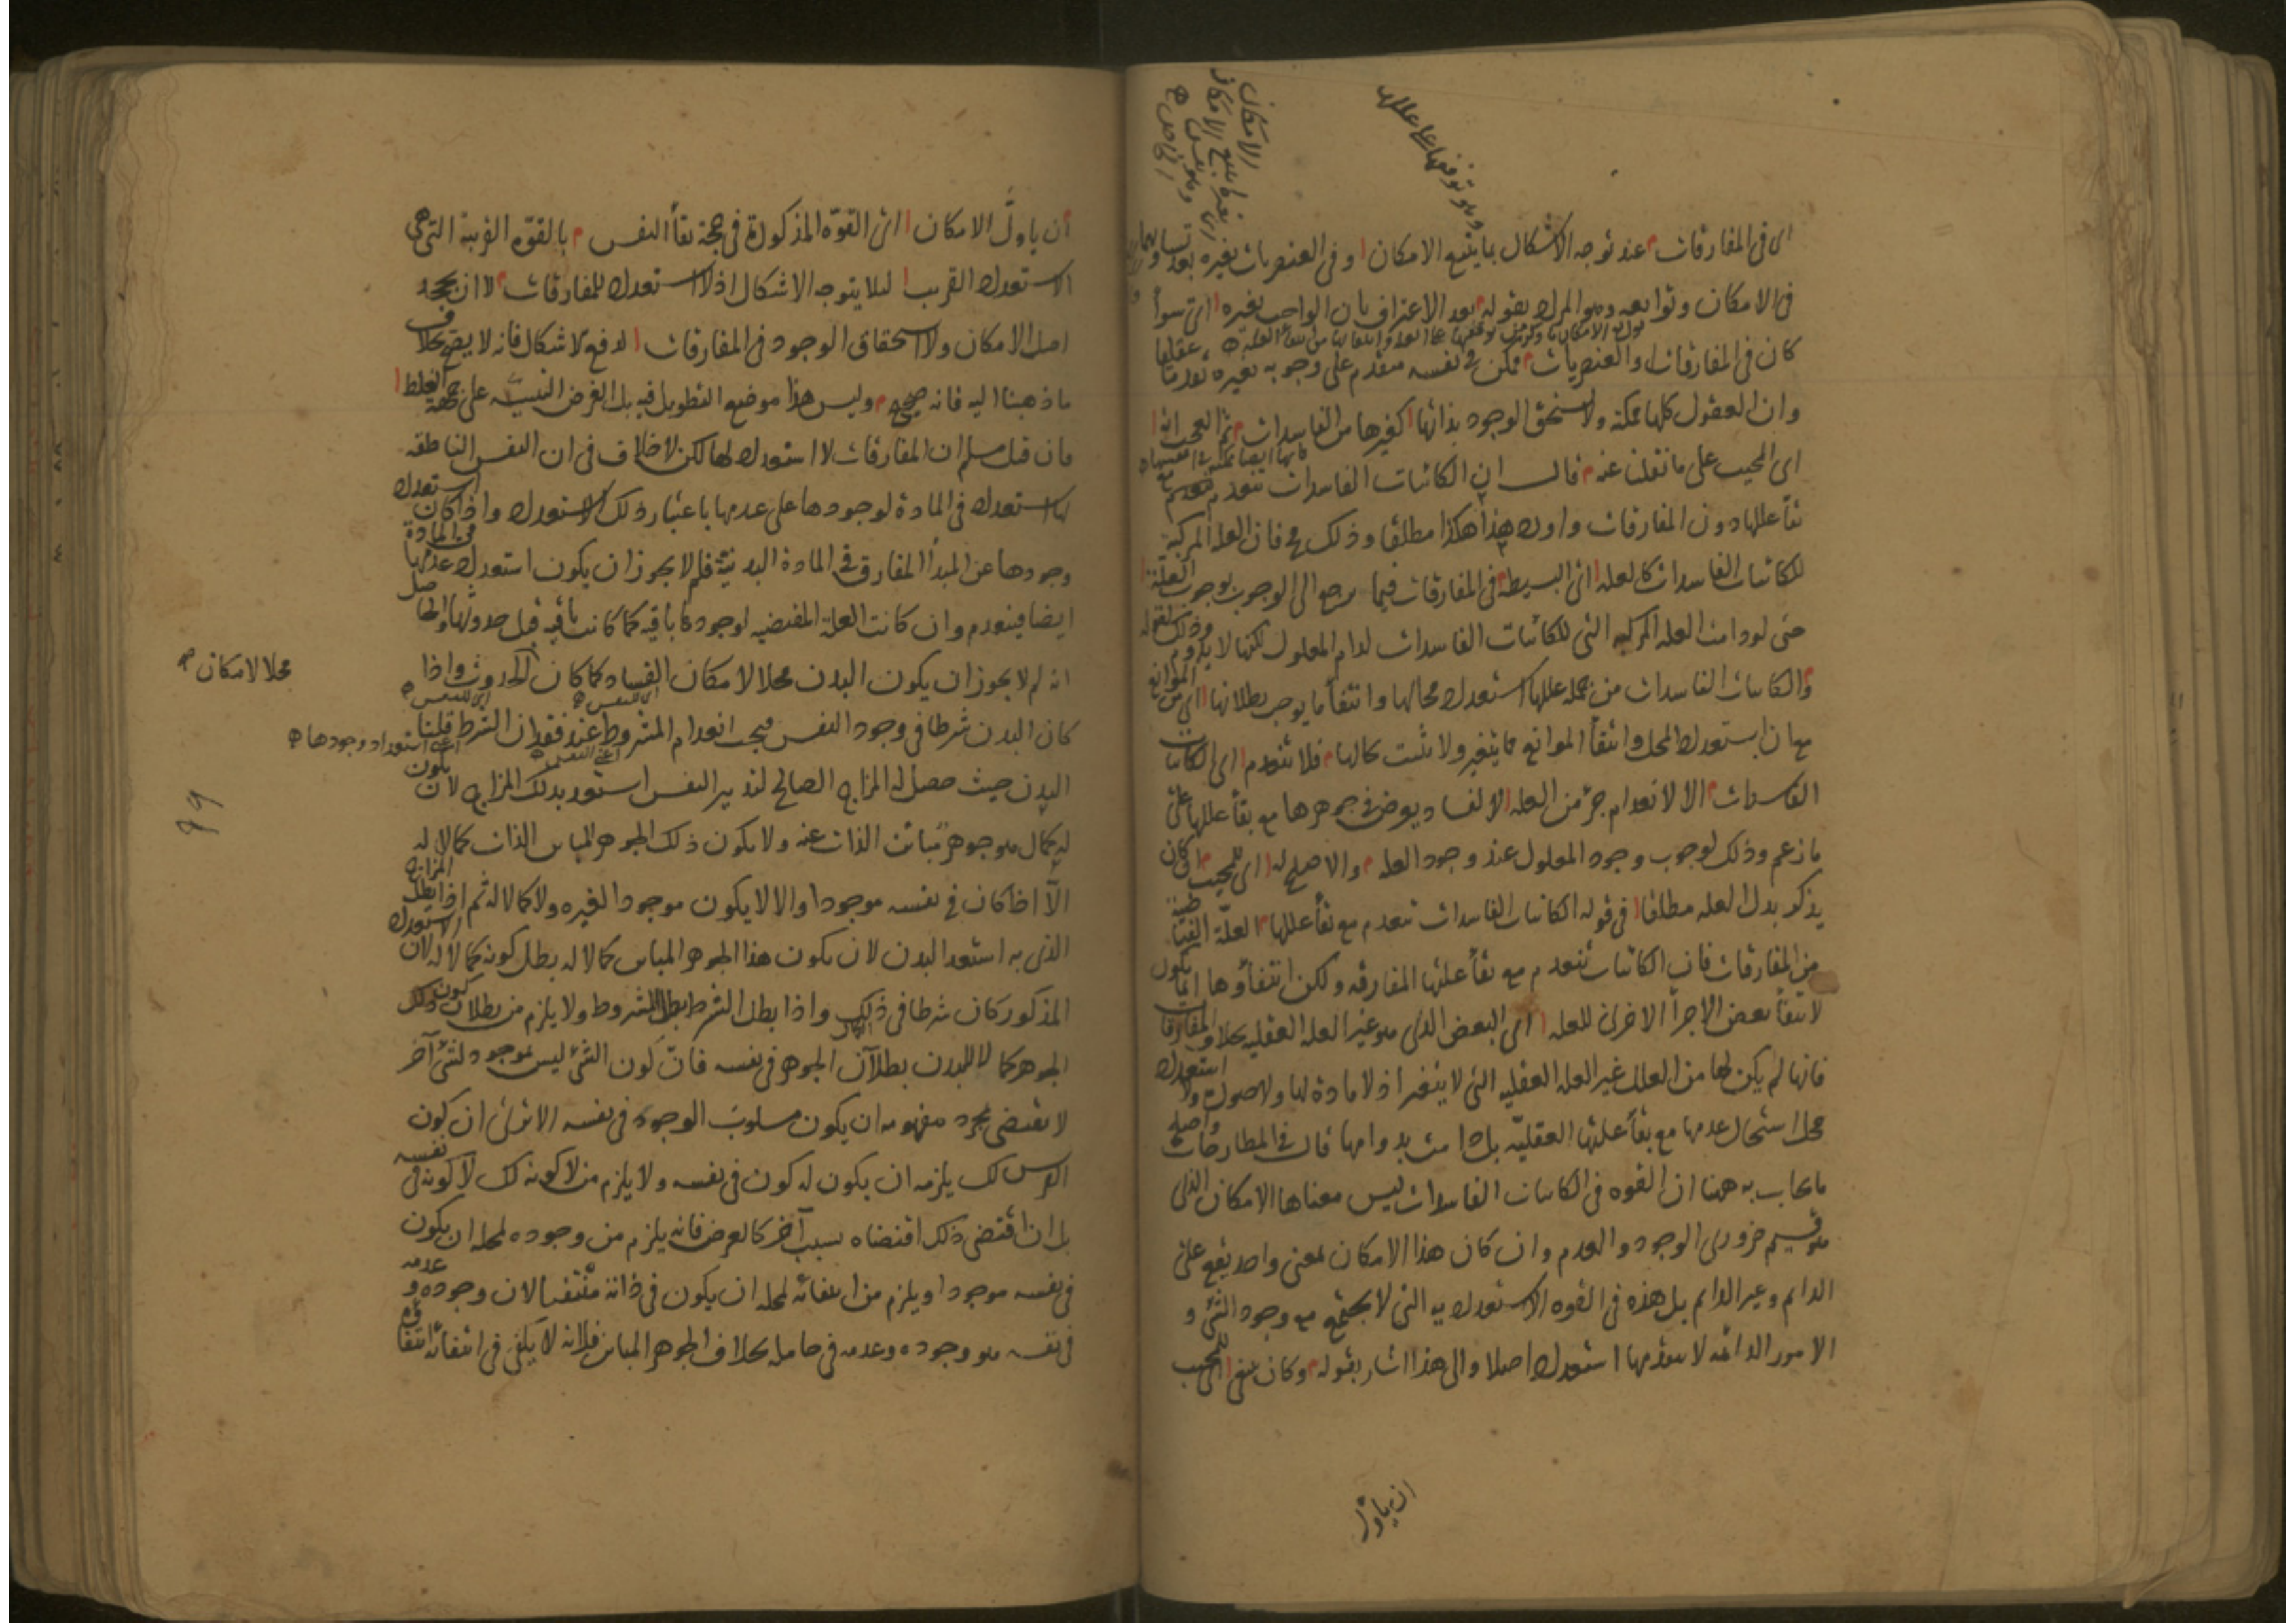 اى فى المفارقات عند توجه الاشكال بما يتبع الامكان وفى العنصريات بغيره بعد تساويهما
فى الامكان وتوابعه وهو المراد بقوله بعد الاعتراف بان الواجب بغيره اى سوا
كان فى المفارقات او العنصريات ممكن فى نفسه متقدم على وجوبه بغيره تقدما عقليا
وان العقول كلها ممكنة ولا تستحق الوجود بذاتها كغيرها من الفاسدات ثم العجب انه
اى المجيب على ما نقلنا عنه قال ان الكائنات الفاسدات تنعدم مع
بقأ عللها دون المفارقات واورد هذا هكذا مطلقا وذلك فان العلة المركبة
للكائنات الفاسدات كالعلة اى البسيطة فى المفارقات فيما يرجع الى الوجوب بوجوب العلة
حتى لو دامت العلة المركبة التى للكائنات الفاسدات لدام المعلول لكنها لا يدوم وذلك لقوله
والكائنات الفاسدات من جملة عللها استعداد محالها وانتفأ ما يوجب بطلانها اى من الموانع
مع ان استعداد المحل وانتفأ الموانع مما يتغير ولا يثبت بحالها فلا تنعدم اى الكائنات
الفاسدات الا لانعدام جزء من العلة لا لفساد يعرض فى جوهرها مع بقأ عللها على
ما زعم وذلك لوجوب وجود المعلول عند وجود العلة والاصلح له اى للمجيب ان كان
يذكر بدل العلة مطلقا فى قوله الكائنات الفاسدات تنعدم مع بقأ عللها العلة الفياضة
من المفارقات فان الكائنات تنعدم مع بقأ علتها المفارقة ولكن انتفاؤها انما يكون
لانتفأ بعض الاجزأ الاخرى للعلة اى البعض الذى هو غير العلة العقلية بخلاف المفارقات
فانها لم يكن لها من العلل غير العلة العقلية التى لا يتغير اذ لا مادة لها ولا صورة ولا استعداد
محل استحال عدمها مع بقأ علتها العقلية بل دامت بدوامها قال فى المطارحات واصلح
ما يجاب به ههنا ان القوه فى الكائنات الفاسدات ليس معناها الامكان الذى
هو قسيم ضرورى الوجود والعدم وان كان هذا الامكان لمعنى واحد يقع على
الدائم وغير الدائم بل هذه فى القوه الاستعدادية التى لا يجتمع مع وجود الشئ و
الامور الدائمة لا يتقدمها استعداد اصلا والى هذا اشار بقوله وكان ينبغى للمجيب
ان ياول
ان ياول الامكان اى القوة المذكورة فى حجة بقأ النفس بالقوة القريبة التى هى
الاستعداد القريب لئلا يتوجه الاشكال اذ لا استعداد للمفارقات لا ان يجحد
اصل الامكان ولا استحقاق الوجود فى المفارقات لدفع الاشكال فانه لا يصح بخلاف
ما ذهبنا اليه فانه صحيح وليس هذا موضع التطويل فيه بل الغرض التنبيه على جهة الغلط
فان قيل مسلم ان المفارقات لا استعداد لها لكن لا خلاف فى ان النفس الناطقه
لها استعداد فى المادة لوجودها على عدمها باعتبار ذلك الاستعداد واذا كان استعداد
وجودها عن المبدأ المفارق فى المادة البدنية فلم لا يجوز ان يكون استعداد عدمها فى المادة
ايضا فينعدم وان كانت العلة المقتضيه لوجودها باقيه كما كانت باقيه قبل حدوثها والحاصل
انه لم لا يجوز ان يكون البدن محلا لامكان الفساد كما كان للحدوث واذا
محلا لامكان
كان البدن شرطا فى وجود النفس فيجب انعدام المشروط عند فقدان الشرط قلنا
اى استعداد وجودها
البدن حيث حصل له المزاج الصالح لتدبير النفس استعد بذلك المزاج لان يكون
له كمال هو جوهر مباين الذات عنه ولا يكون ذلك الجوهر المباين الذات كمالا له
الا اذا كان فى نفسه موجودا والا لا يكون موجودا لغيره ولا كمالا له ثم اذا بطل المزاج
الذى به استعد البدن لان يكون هذا الجوهر المباين كمالا له بطل كونه كمالا له لان الاستعداد
المذكور كان شرطا فى ذلك واذا بطل الشرط بطل المشروط ولا يلزم من بطلان كون ذلك
الجوهر كمالا للبدن بطلان الجوهر فى نفسه فان كون الشئ ليس موجود لشئ آخر
لا يقتضى بمجرد مفهومه ان يكون مسلوب الوجود فى نفسه الا ترى ان كون
الفرس لك يلزمه ان يكون له كون فى نفسه ولا يلزم من لا كونه لك لا كونه فى نفسه
بل ان اقتضى ذلك اقتضاه بسبب آخر كالعرض فانه يلزم من وجوده لمحله ان يكون
فى نفسه موجودا ويلزم من انتفائه لمحله ان يكون فى ذاته منتفيا لان وجوده و عدمه
فى نفسه هو وجوده وعدمه فى حامله بخلاف الجوهر المباين فانه لا يكفى فى انتفائه انتفأ